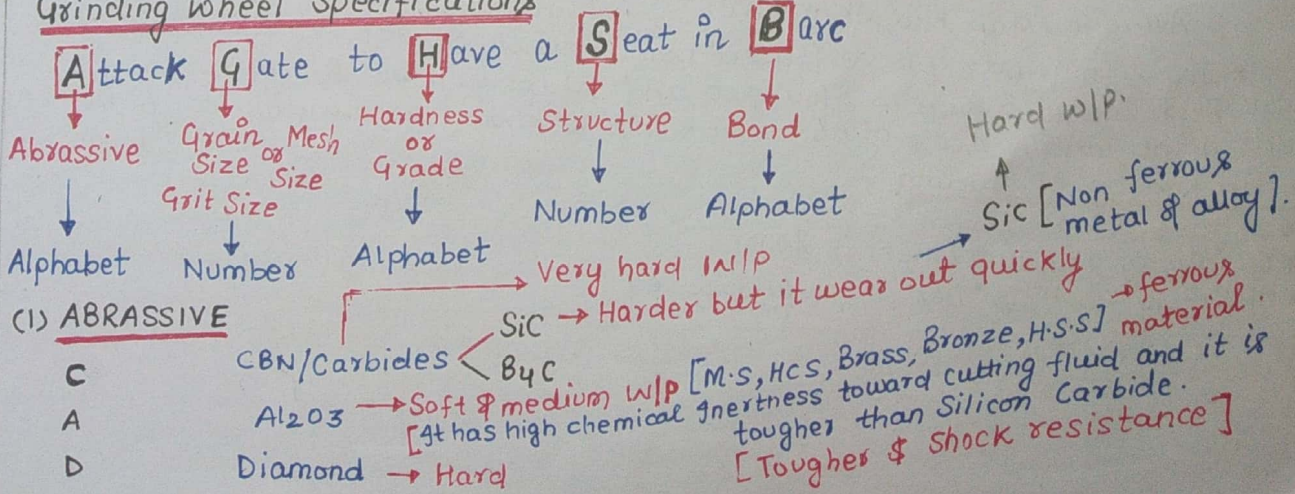 Grinding Wheel Specifications
Attack Gate to Have a Seat in Barc
Abrassive
Grain or Mesh
Size Size
Grit Size
Hardness
or
Grade
Structure
Bond
Alphabet
Number
Alphabet
Number
Alphabet
Hard w/p.
Sic [Non ferrous
metal & alloy].
(1) ABRASSIVE
Very hard W/P
C CBN/Carbides
SiC → Harder but it wears out quickly
B4C
A Al2O3 → Soft & medium w/p [M.S, HCS, Brass, Bronze, H.S.S] → ferrous
material.
[It has high chemical Inertness toward cutting fluid and it is
tougher than Silicon Carbide.
D Diamond → Hard
[Tougher & Shock resistance]